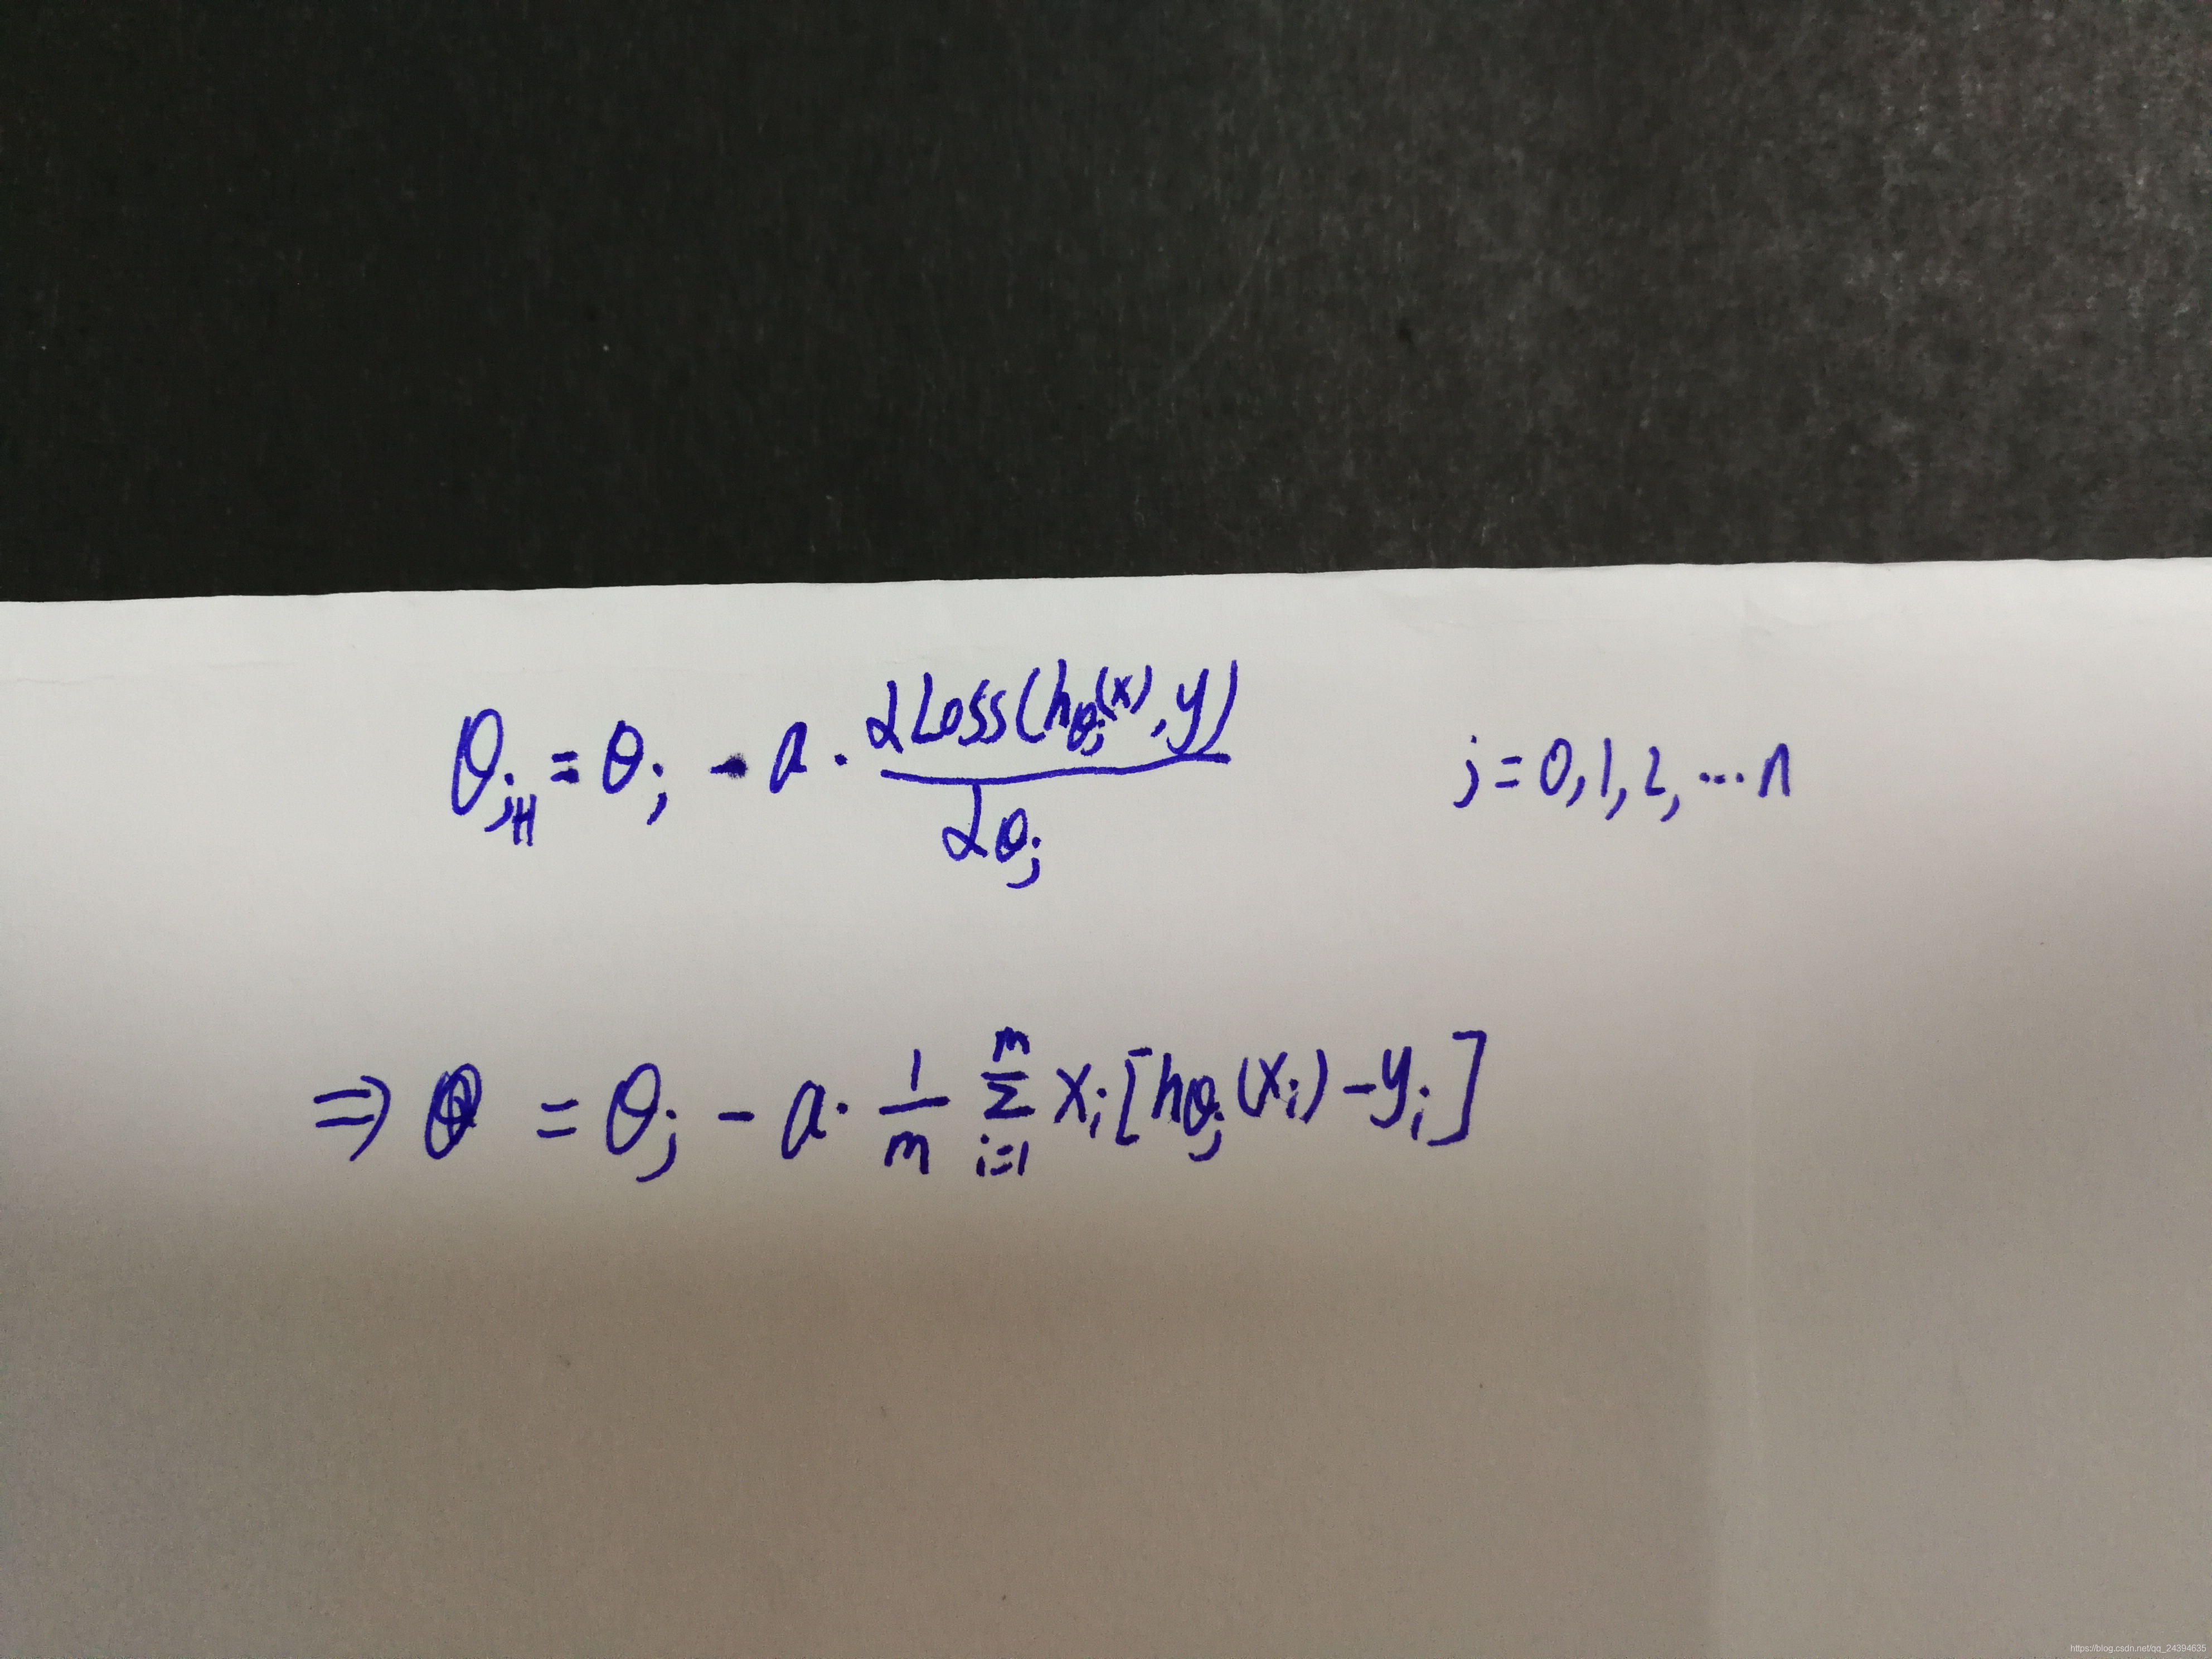 θ_{j+1} = θ_j - a · ∂Loss(h_{θ_j}(x), y) / ∂θ_j    j = 0, 1, 2, ... n
⇒ θ = θ_j - a · 1/m Σ_{i=1}^{m} x_i [h_{θ_j}(x_i) - y_i]
https://blog.csdn.net/qq_24394635